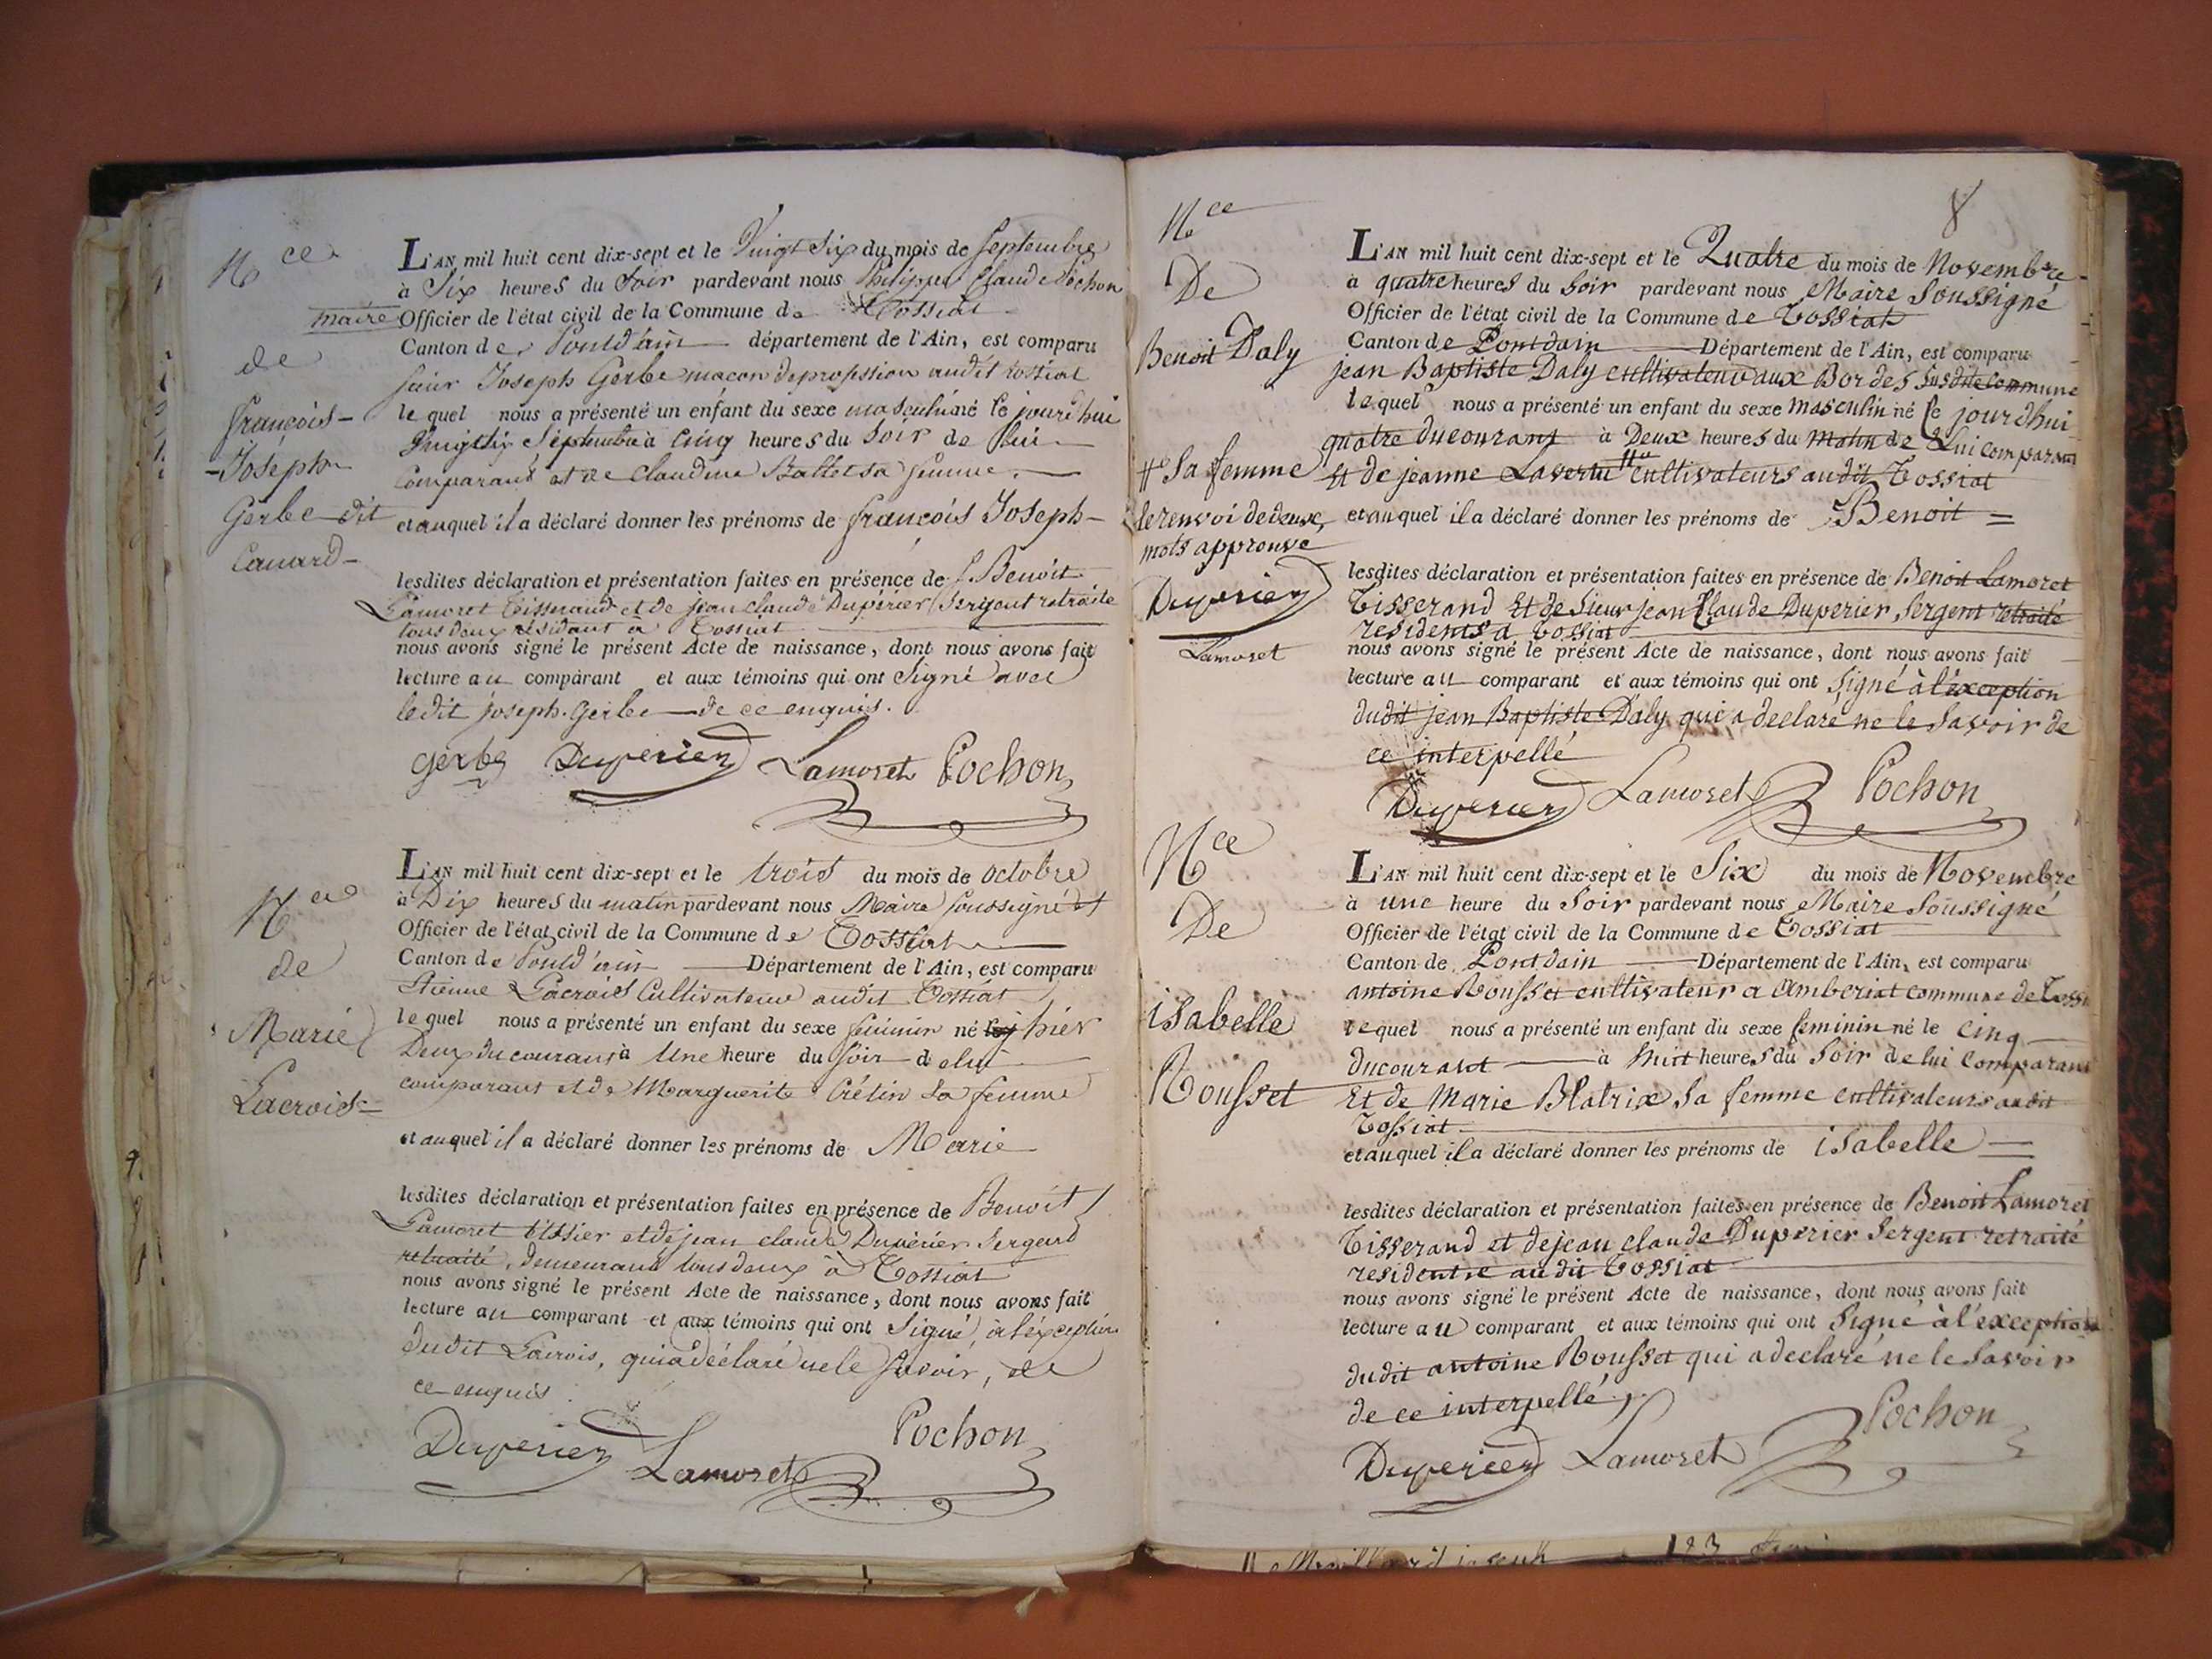 Nce
maire
de
françois-
-Joseph
Gerbe dit
Canard-
L'AN mil huit cent dix-sept et le Vingt Six du mois de Septembre
à Six heures du Soir pardevant nous Philippe Claude Pochon
Officier de l'état civil de la Commune de Tossiat
Canton de Pontd'ain département de l'Ain, est comparu
sieur Joseph Gerbe macon de profession audit tossiat
le quel nous a présenté un enfant du sexe masculin né le jourd'hui
Vingt six Septembre à Cinq heures du Soir de lui
Comparant et de Claudine Ballet sa femme
et auquel il a déclaré donner les prénoms de françois Joseph-
lesdites déclaration et présentation faites en présence de J. Benoit
Lamoret Tisserand et de jean claude Dupérier Sergent retraite
tous deux résidant à Tossiat
nous avons signé le présent Acte de naissance, dont nous avons fait
lecture au comparant et aux témoins qui ont Signé avec
ledit joseph Gerbe de ce enquis.
gerbe Duperier Lamoret Pochon
Nce
de
Marie
Lacroix
L'AN mil huit cent dix-sept et le trois du mois de octobre
à Dix heures du matin pardevant nous Maire soussigné et
Officier de l'état civil de la Commune de Tossiat
Canton de Pontd'ain Département de l'Ain, est comparu
Etienne Lacroix Cultivateur audit Tossiat
le quel nous a présenté un enfant du sexe féminin né hier
Deux du courant à Une heure du soir de lui
comparant et de Marguerite Crétin sa femme
et auquel il a déclaré donner les prénoms de Marie
lesdites déclaration et présentation faites en présence de Benoit
Lamoret tissier et de jean claude Duperier Sergent
retraité, demeurant tous deux à Tossiat
nous avons signé le présent Acte de naissance, dont nous avons fait
lecture au comparant et aux témoins qui ont Signé à l'éxception
dudit Lacrois, qui a déclaré ne le savoir, de
ce enquis
Duperier Lamoret Pochon
8
Nce
De
Benoit Daly
# Sa femme
le renvoi de deux
mots approuvé
Duperier
Lamoret
L'AN mil huit cent dix-sept et le Quatre du mois de Novembre
à quatre heures du Soir pardevant nous Maire Soussigné
Officier de l'état civil de la Commune de Tossiat
Canton de Pontdain Département de l'Ain, est comparu
jean Baptiste Daly cultivateur aux Bordes Susdite Commune
lequel nous a présenté un enfant du sexe masculin né le jourdhui
quatre du courant à Deux heures du Matin de Lui comparant
Et de jeanne Lavertu # cultivateurs audit Tossiat
et auquel il a déclaré donner les prénoms de Benoit =
lesdites déclaration et présentation faites en présence de Benoit Lamoret
Tisserand Et de Sieur jean Claude Duperier, Sergent retraité
residents a Tossiat
nous avons signé le présent Acte de naissance, dont nous avons fait
lecture au comparant et aux témoins qui ont Signé à l'exception
dudit jean Baptiste Daly qui a declaré ne le Savoir de
ce interpellé
Duperier Lamoret Pochon
Nce
De
isabelle
Rousset
L'AN mil huit cent dix-sept et le Six du mois de Novembre
à une heure du Soir pardevant nous Maire Soussigné
Officier de l'état civil de la Commune de Tossiat
Canton de Pontdain Département de l'Ain, est comparu
antoine Rousset cultivateur a Amberiat commune de Tossi
lequel nous a présenté un enfant du sexe feminin né le cinq
du courant à huit heures du Soir de lui Comparant
Et de Marie Blatrix Sa femme cultivateurs audit
Tossiat
et auquel il a déclaré donner les prénoms de isabelle
lesdites déclaration et présentation faites en présence de Benoit Lamoret
Tisserand et de jean claude Duperier Sergent retraité
audit Tossiat
nous avons signé le présent Acte de naissance, dont nous avons fait
lecture au comparant et aux témoins qui ont Signé à l'exception
dudit antoine Rousset qui a declaré ne le Savoir
de ce interpellé
Duperier Lamoret Pochon